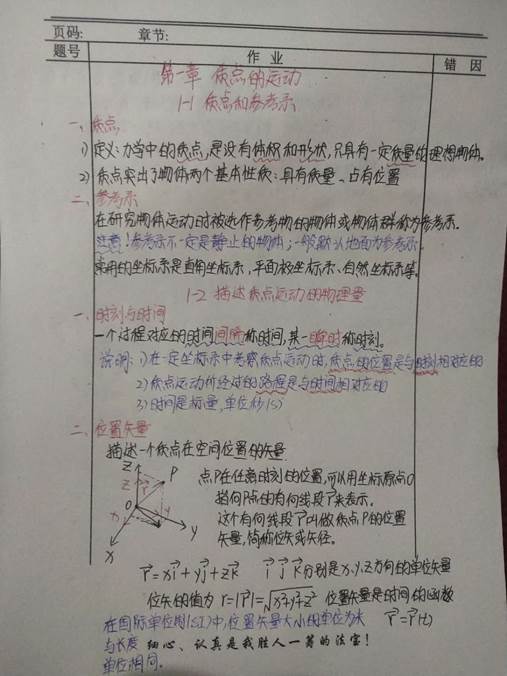 页码: 章节:
题号 作 业 错 因
第一章 质点的运动
1-1 质点和参考系
一、质点
1) 定义:力学中的质点,是没有体积和形状,只具有一定质量的理想物体。
2) 质点突出了物体两个基本性质:具有质量、占有位置
二、参考系
在研究物体运动时被选作参考物的物体或物体群称为参考系.
注意!参考系不一定是静止的物体;一般默认地面为参考系.
常用的坐标系是直角坐标系,平面极坐标系、自然坐标系等。
1-2 描述质点运动的物理量
一、时刻与时间
一个过程对应的时间间隔称时间,某一瞬时称时刻。
说明:1)在一定坐标系中考察质点运动时,质点的位置是与时刻相对应的
2)质点运动所经过的路程是与时间相对应的
3)时间是标量,单位秒(s)
二、位置矢量
描述一个质点在空间位置的矢量
Z
Z P
r⃗
点P在任意时刻的位置,可以用坐标原点O
指向P点的有向线段r⃗来表示.
O
这个有向线段r⃗叫做质点P的位置
x y Y
矢量,简称位矢或矢径。
X
r⃗=xi⃗+yj⃗+zk⃗ i⃗ j⃗ k⃗分别是x、y、z方向的单位矢量
位矢的值为 r=|r⃗|=√x²+y²+z² 位置矢量是时间的函数
在国际单位制(SI)中,位置矢量大小的单位为米 r⃗=r⃗(t)
与长度 细心、认真是我胜人一筹的法宝!
单位相同.